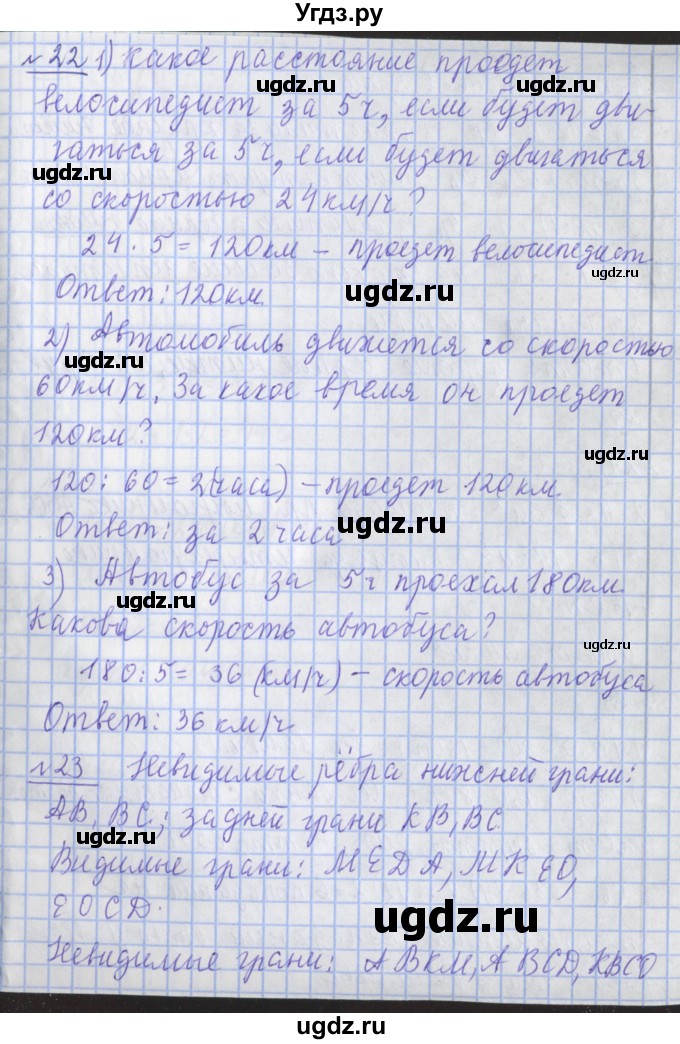 Угдз.ру
№22 1) Какое расстояние проедет
ugdz.ru ugdz.ru
велосипедист за 5ч, если будет дви-
гаться за 5ч, если будет двигаться
ugdz.ru
со скоростью 24км/ч?
ugdz.ru
24 · 5 = 120км – проедет велосипедист
ugdz.ru
Ответ: 120км.
ugdz.ru
2) Автомобиль движется со скоростью
ugdz.ru
60км/ч. За какое время он проедет
120км?
ugdz.ru
120 : 60 = 2(часа) – проедет 120км.
Ответ: за 2 часа
ugdz.ru
3) Автобус за 5ч проехал 180км.
ugdz.ru
Какова скорость автобуса?
ugdz.ru
180:5= 36 (км/ч) – скорость автобуса
Ответ: 36 км/ч
ugdz.ru
№23 Невидимые рёбра нижней грани:
ugdz.ru
АВ, ВС.; задней грани КВ, ВС
ugdz.ru
Видимые грани: МЕDА, МКЕО,
ЕОСD.
ugdz.ru
Невидимые грани: АВКМ, АВСD, КВСО
ugdz.ru
ugdz.ru